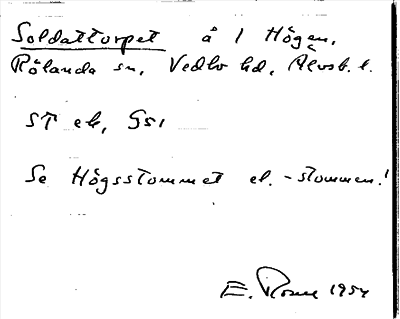 Soldattorpet å 1 Högen,
Rölanda sn, Vedbo hd, Älvsb. l.
ST ek, §51
Se Högsstommet el. -stommen!
E. Rosell 1954